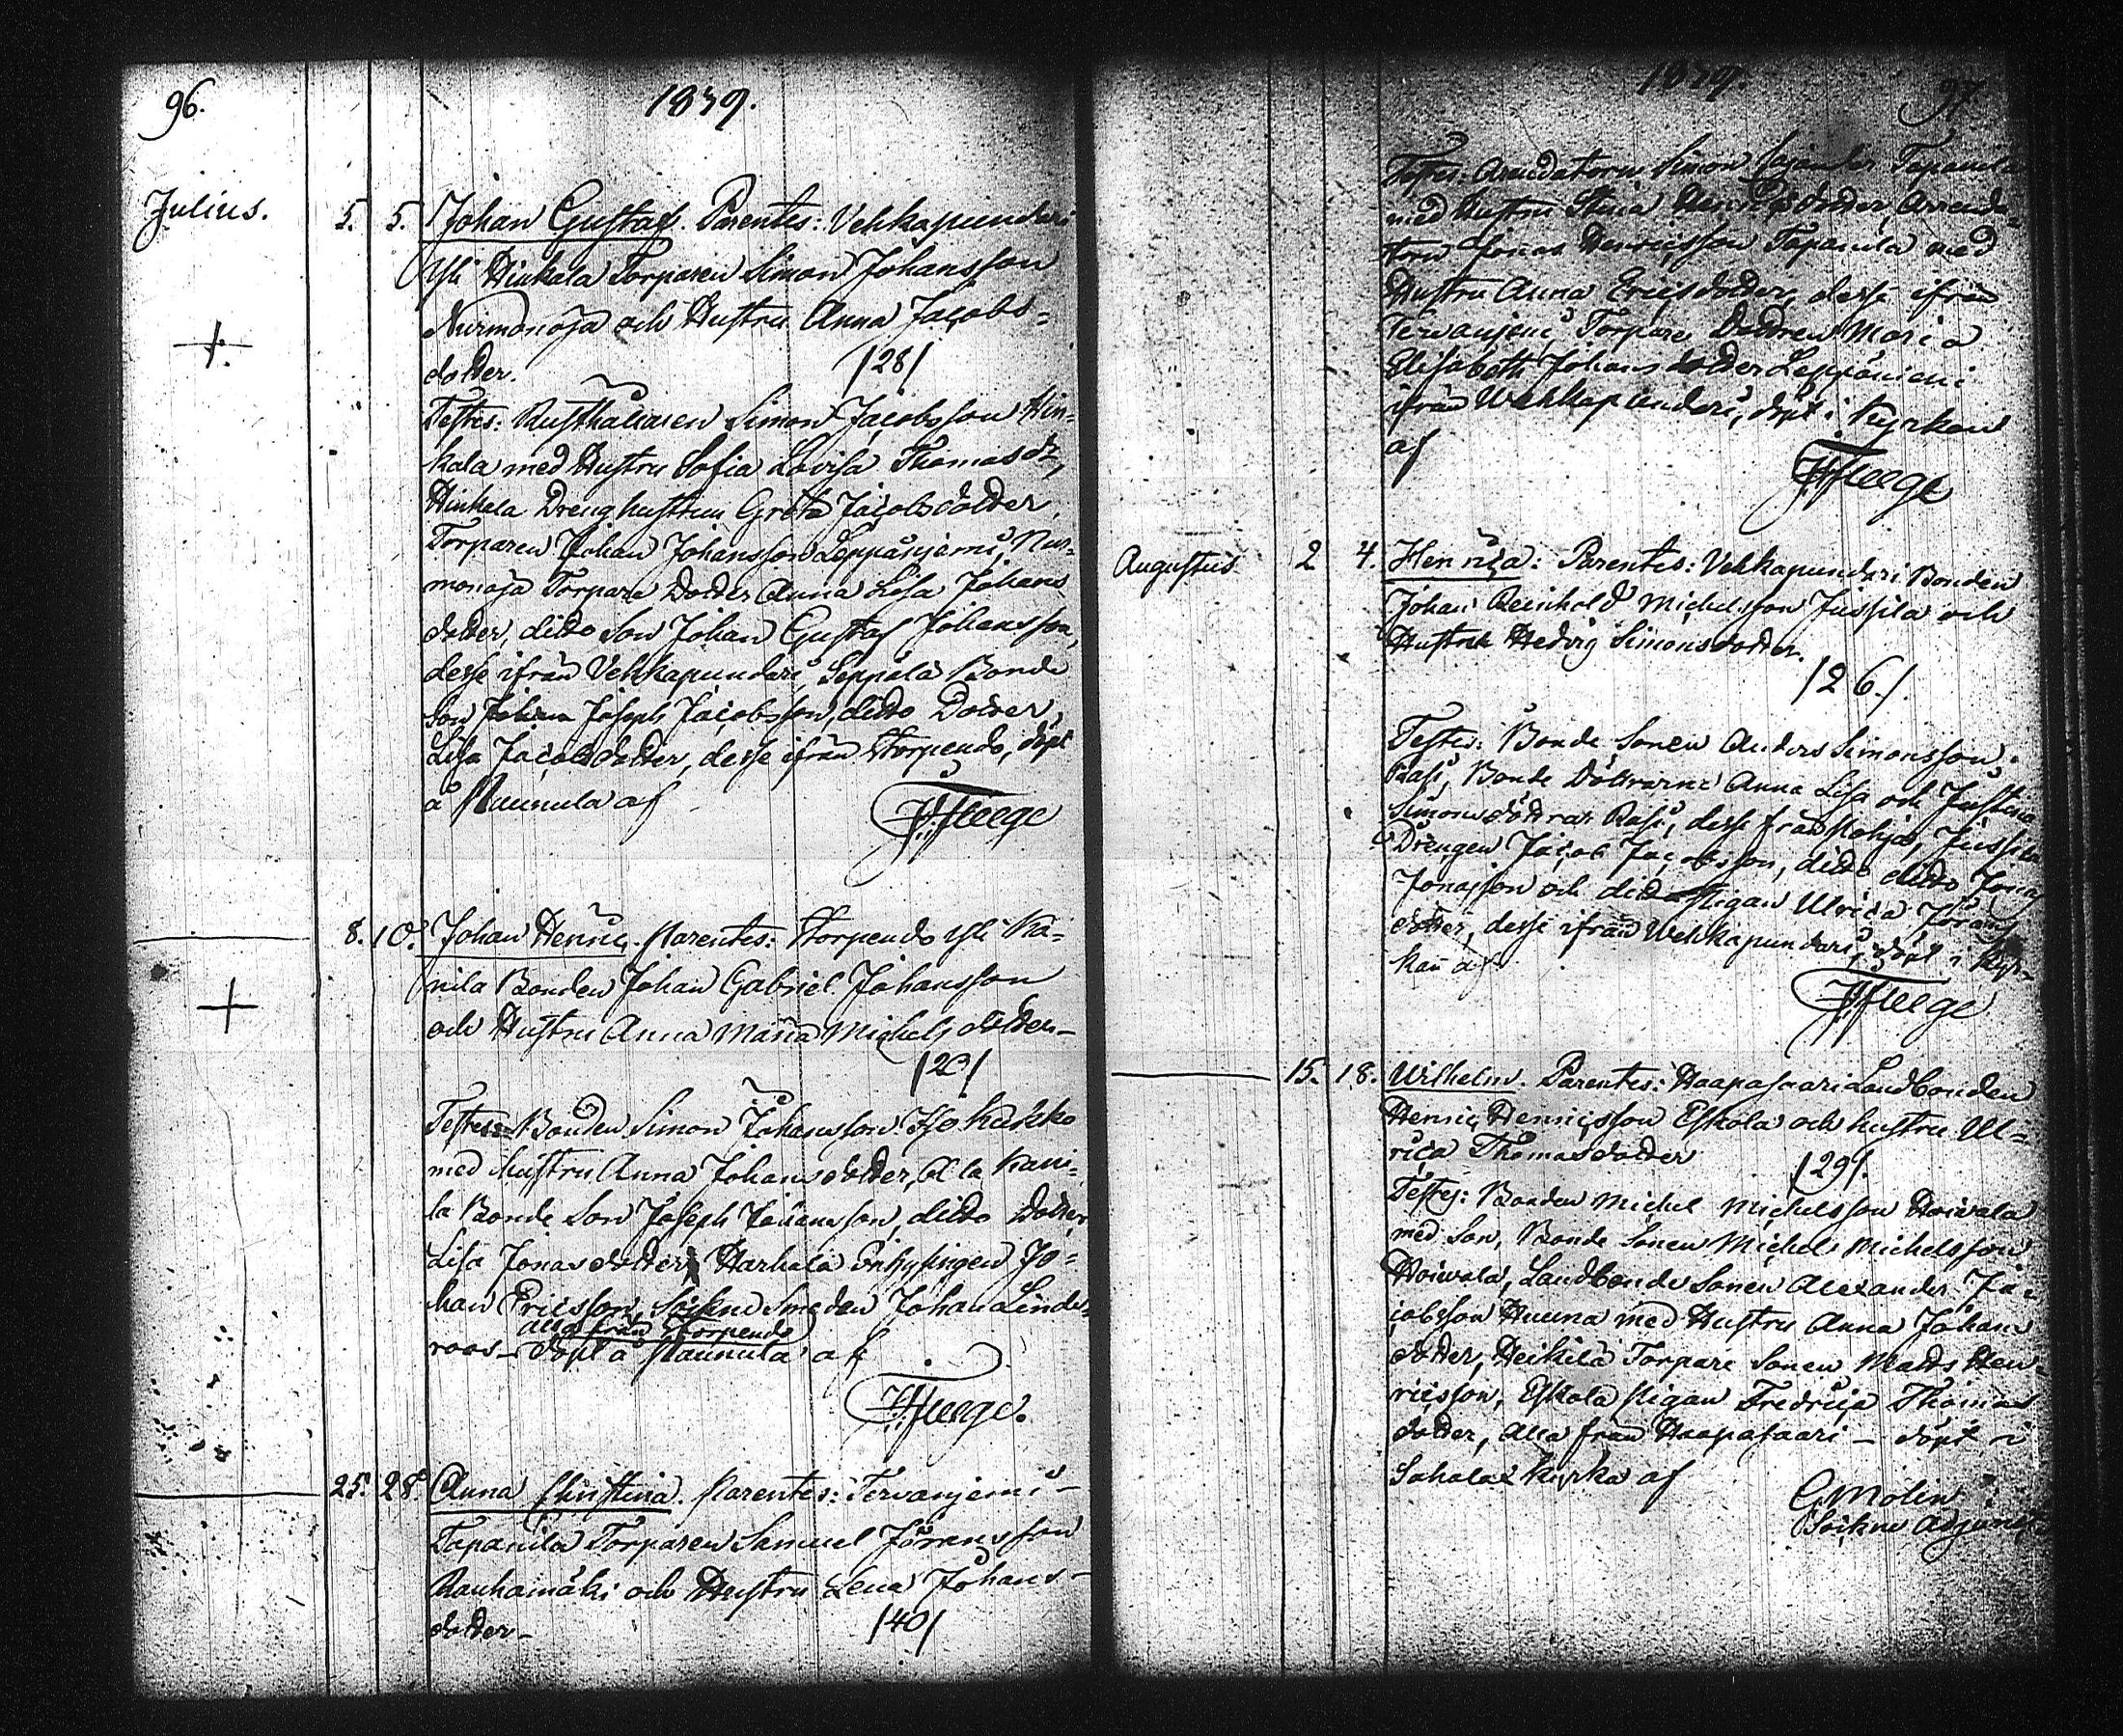 96.
1839.
Julius.
5. 5. Johan Gustaf. Parentes: Vehkapundari
Yli Hinkala Torparen Simon Johansson
Nurmonoja och Hustru Anna Jacobs=
dotter. /28/
Testes: Rusthållaren Simon Jacobsson Hin=
kala med Hustru Sofia Lovisa Thomasdr,
Hinkala Dreng hustrun Greta Jacobsdotter,
Torparen Johan Johansson Leppäniemi, Nur=
monoja Torpare Dotter Anna Lisa Johans
dotter, ditto Son Johan Gustaf Johansson,
desse ifrån Vehkapundari Seppälä Bonde
Son Joseph Jacobsson, ditto Dotter
Lisa Jacobsdotter, desse ifrån Storpendo, döpt
å Naunula af
8. 10. Johan Henric. Parentes: Storpendo Yli Ka=
nila Bonden Johan Gabriel Johansson
och Hustru Anna Maria Michelsdotter–
/20/
Testes: Bonden Simon Johansson Iso Kuikko
med hustru Anna Johansdotter, Ala Kani=
la Bonde Son Joseph Johansson, ditto Dotter
Lisa Jonasdotter, Harhala Inhysingen Jo=
han Ericsson, Sockne Smeden Johan Lind=
alla från Storpendo
roos– döpt å Naunula af
25. 28. Anna Christina. Parentes: Tervanjemi–
Tapanila Torparen Samuel Göransson
Rauhamäki och Hustru Lena Johans–
dotter– /40/
1839.
97
Testes: Arendatorn Simon Tapanila
med Hustru Stina Henricsdotter, Arrenda=
torn Jonas Henricsson Tapanila med
Hustru Anna Ericsdotter, desse ifrån
Tervanjemi Torpare Dottren Maria
Elisabeth Johansdotter Leppäniemi
ifrån Wehkapundari, döpt i Kyrkan
af
Augustus. 2 4. Henrica: Parentes: Vehkapundari Bonden
Johan Reinhold Michelsson Jussila och
Hustru Hedvig Simonsdotter.
/26./
Testes: Bonde Sonen Anders Simonsson
Rasi, Bonde Döttrarne Anna Lisa och Justina
Simonsdöttrar Rasi, desse från Pohja, Jussila
Drengen Jacob Jacobsson, ditto ditto Jonas
Jonasson och ditto Pigan Ulrica Görans
dotter, desse ifrån Wehkapundari, döpt i Kyr=
kan af
15. 18. Wilhelm. Parentes: Haapasaari Landbonden
Henric Henricsson Eskola och hustru Ul=
rica Thomasdotter /29/.
Testes: Bonden Michel Michelsson Hoivala
med Son, Bonde Sonen Michel Michelsson
Hoivala, Landbonde Sonen Alexander Ja=
cobsson Huuna med Hustru Anna Johans
dotter, Heikilä Torpare Sonen Matts Hen=
ricsson, Eskola Pigan Fredrica Thomas
dotter, alla från Haapasaari – döpt i
Sahalax Kyrka af
G Molin
Sockne Adjunct